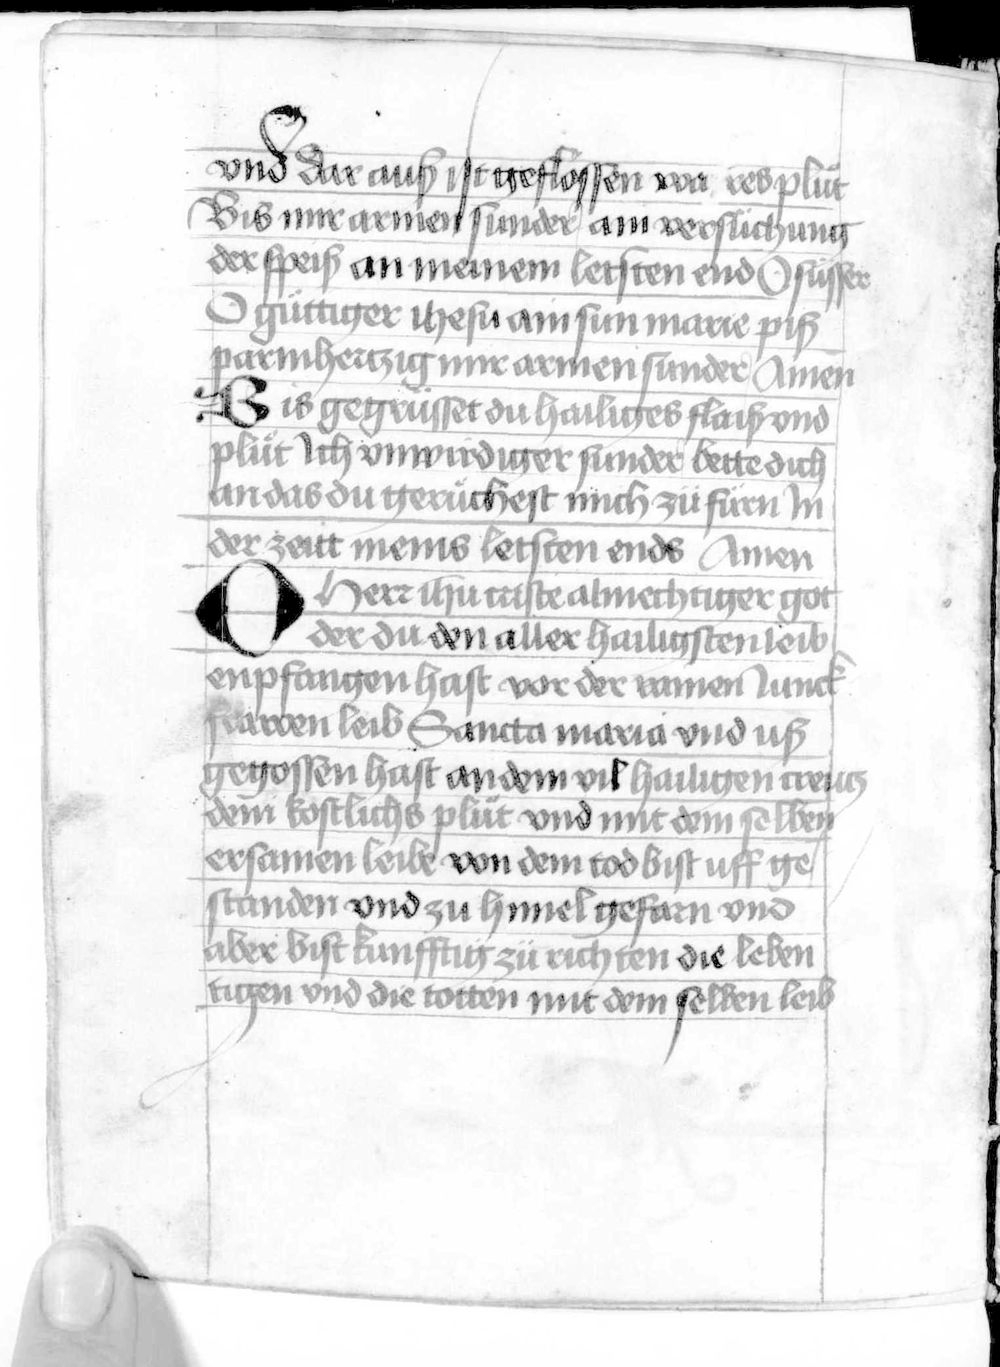 vnd dar auß ist geflossen wa res plůt
Bis mir armen sunder ain verslichung
der speiß an meinem letsten end O süsser
O güttiger ihesu ain sun marie piß
parmhertzig mir armen sunder Amen
Bis gegrüsset du hailiges flaiß vnd
plůt Ich vnwirdiger sunder bette dich
an das du gerůchest mich zů fürn In
der zeitt meins letsten ends Amen
O Herr ihu criste almechtiger got
der du den aller hailigsten leib
enpfangen hast vor der rainen Junck
frawen leib Sancta maria vnd uß
gegossen hast an dem vil hailigen creutz
dein kostlichs plůt vnd mit dem selben
ersamen leibe von dem tod bist uff ge
standen vnd zu himel gefarn vnd
aber bist kunfftig zů richten die leben
tigen vnd die totten mit dem selben leib